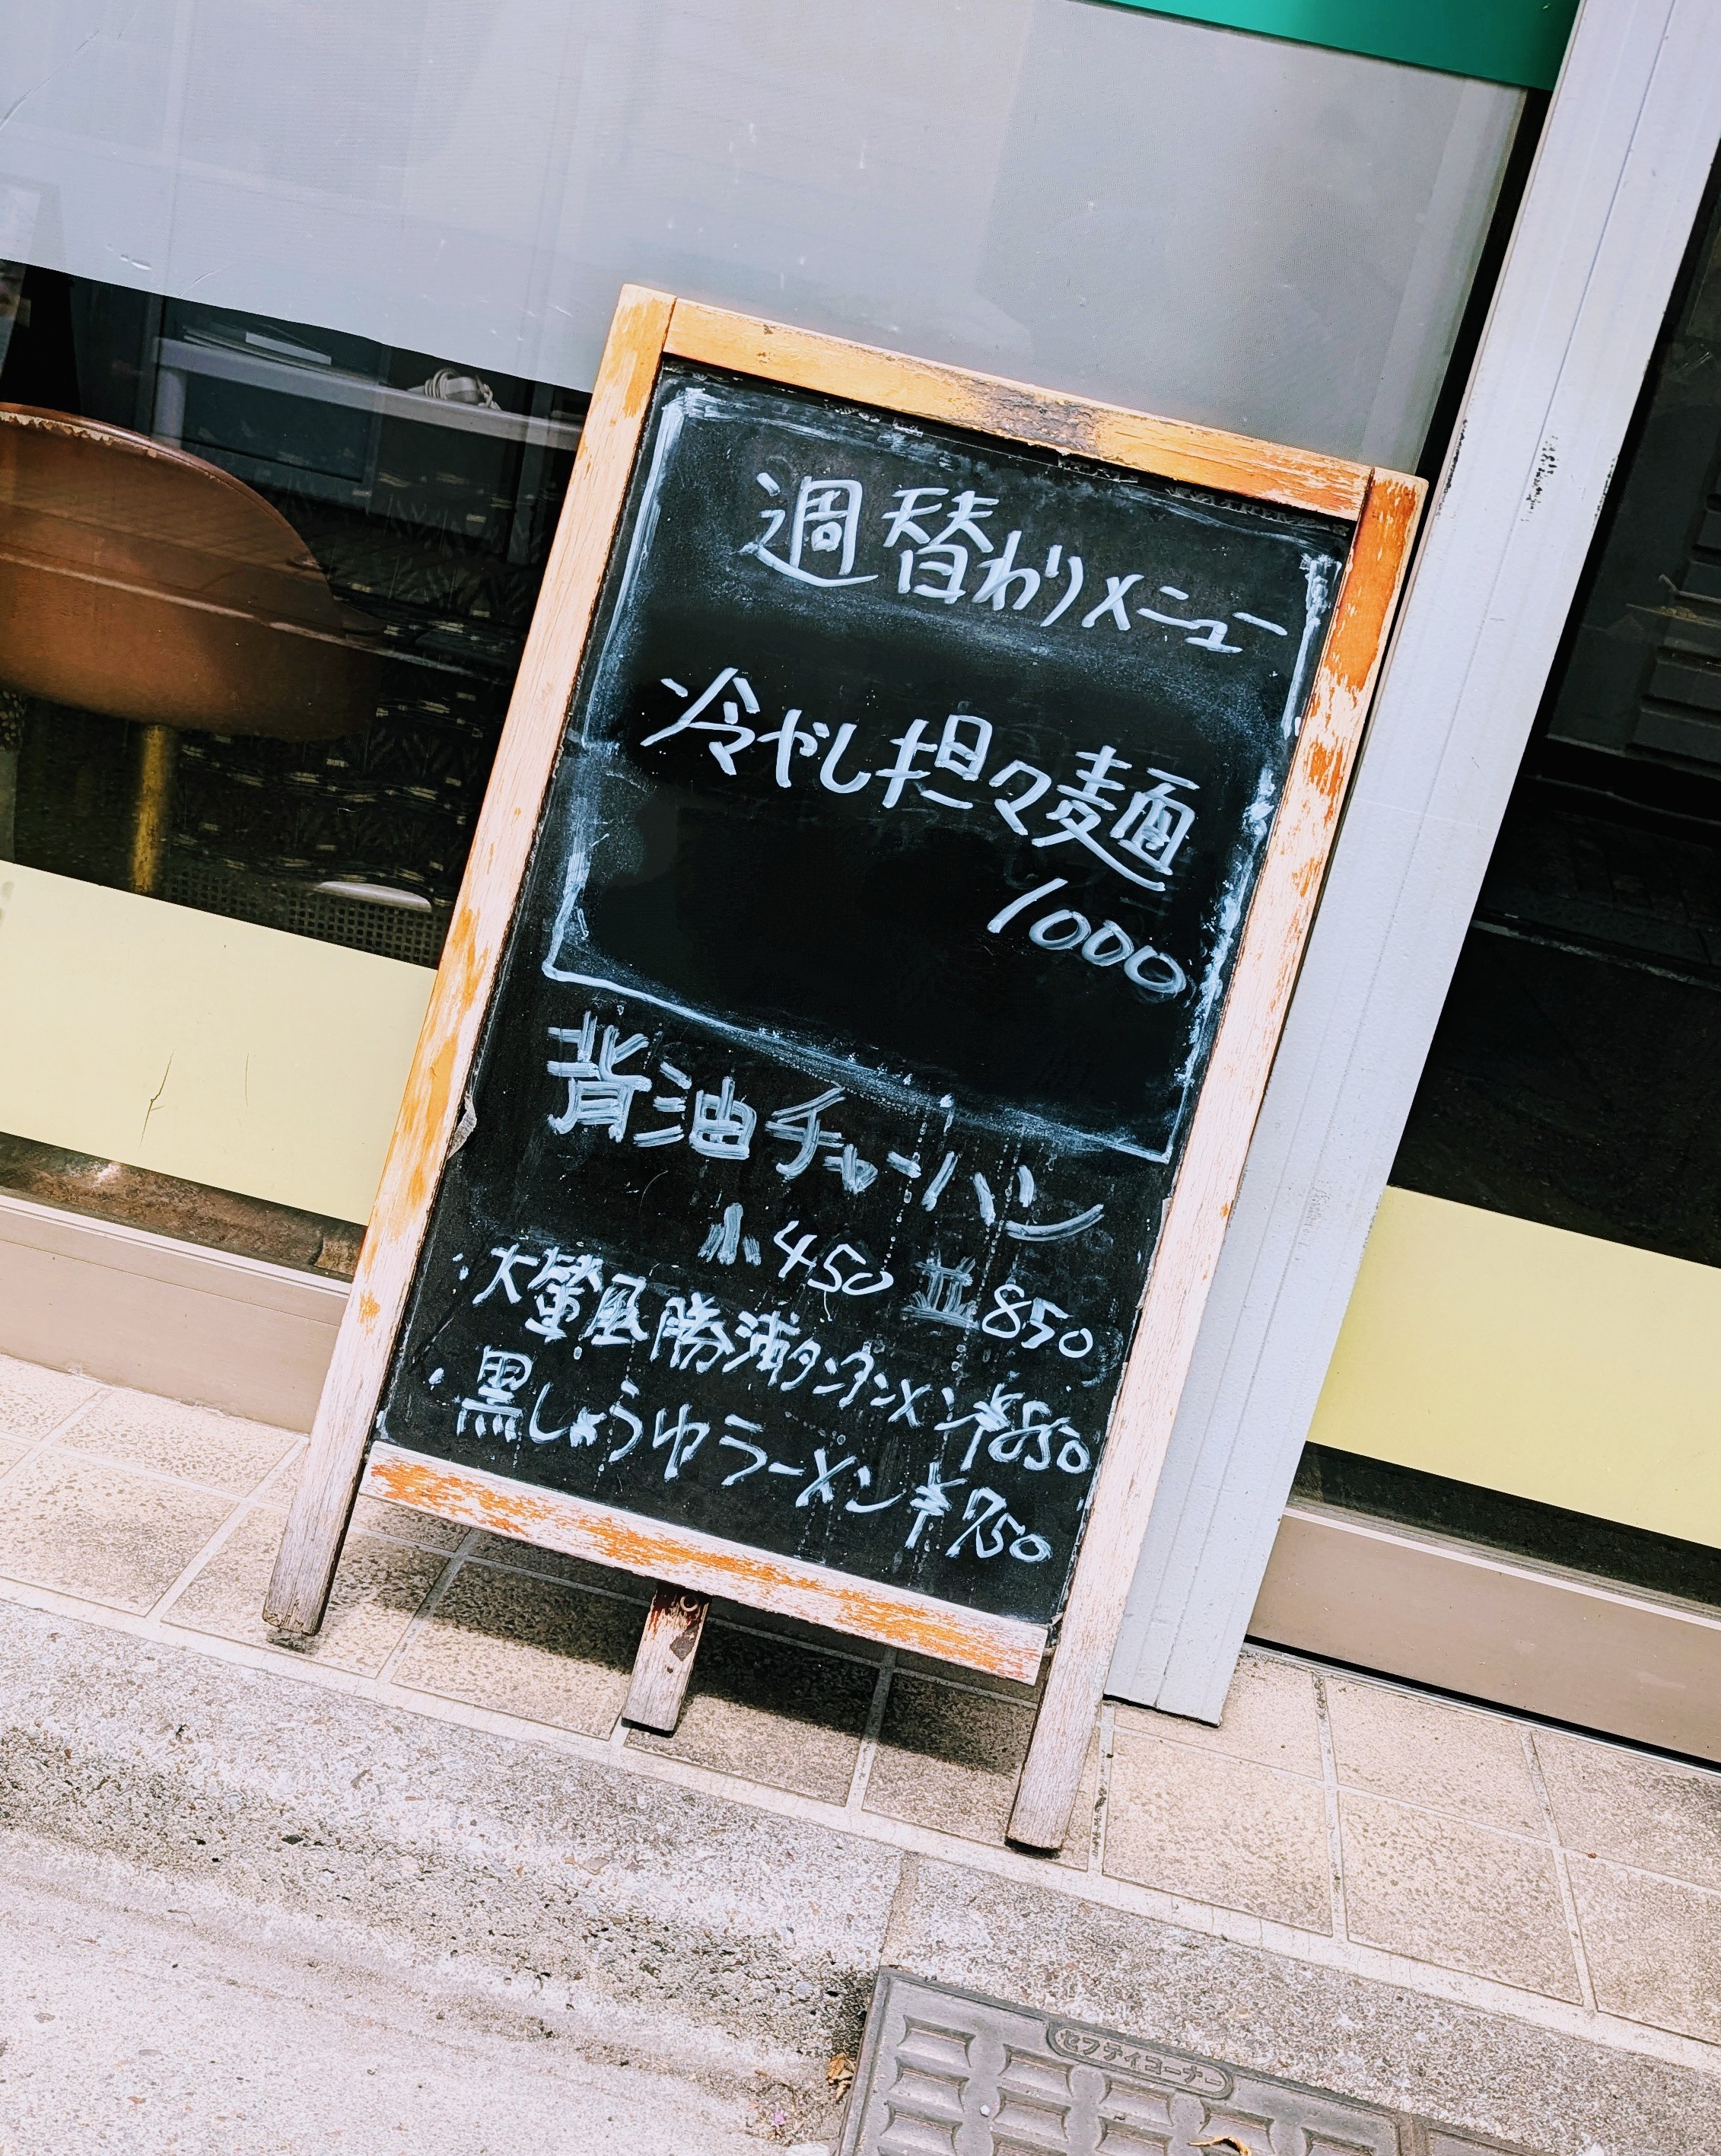 週替わりメニュー
冷やし担々麺
1000
背油チャーハン
小450 並850
・大螢風勝浦タンタンメン¥850
・黒しょうゆラーメン¥750
セフティコーナー